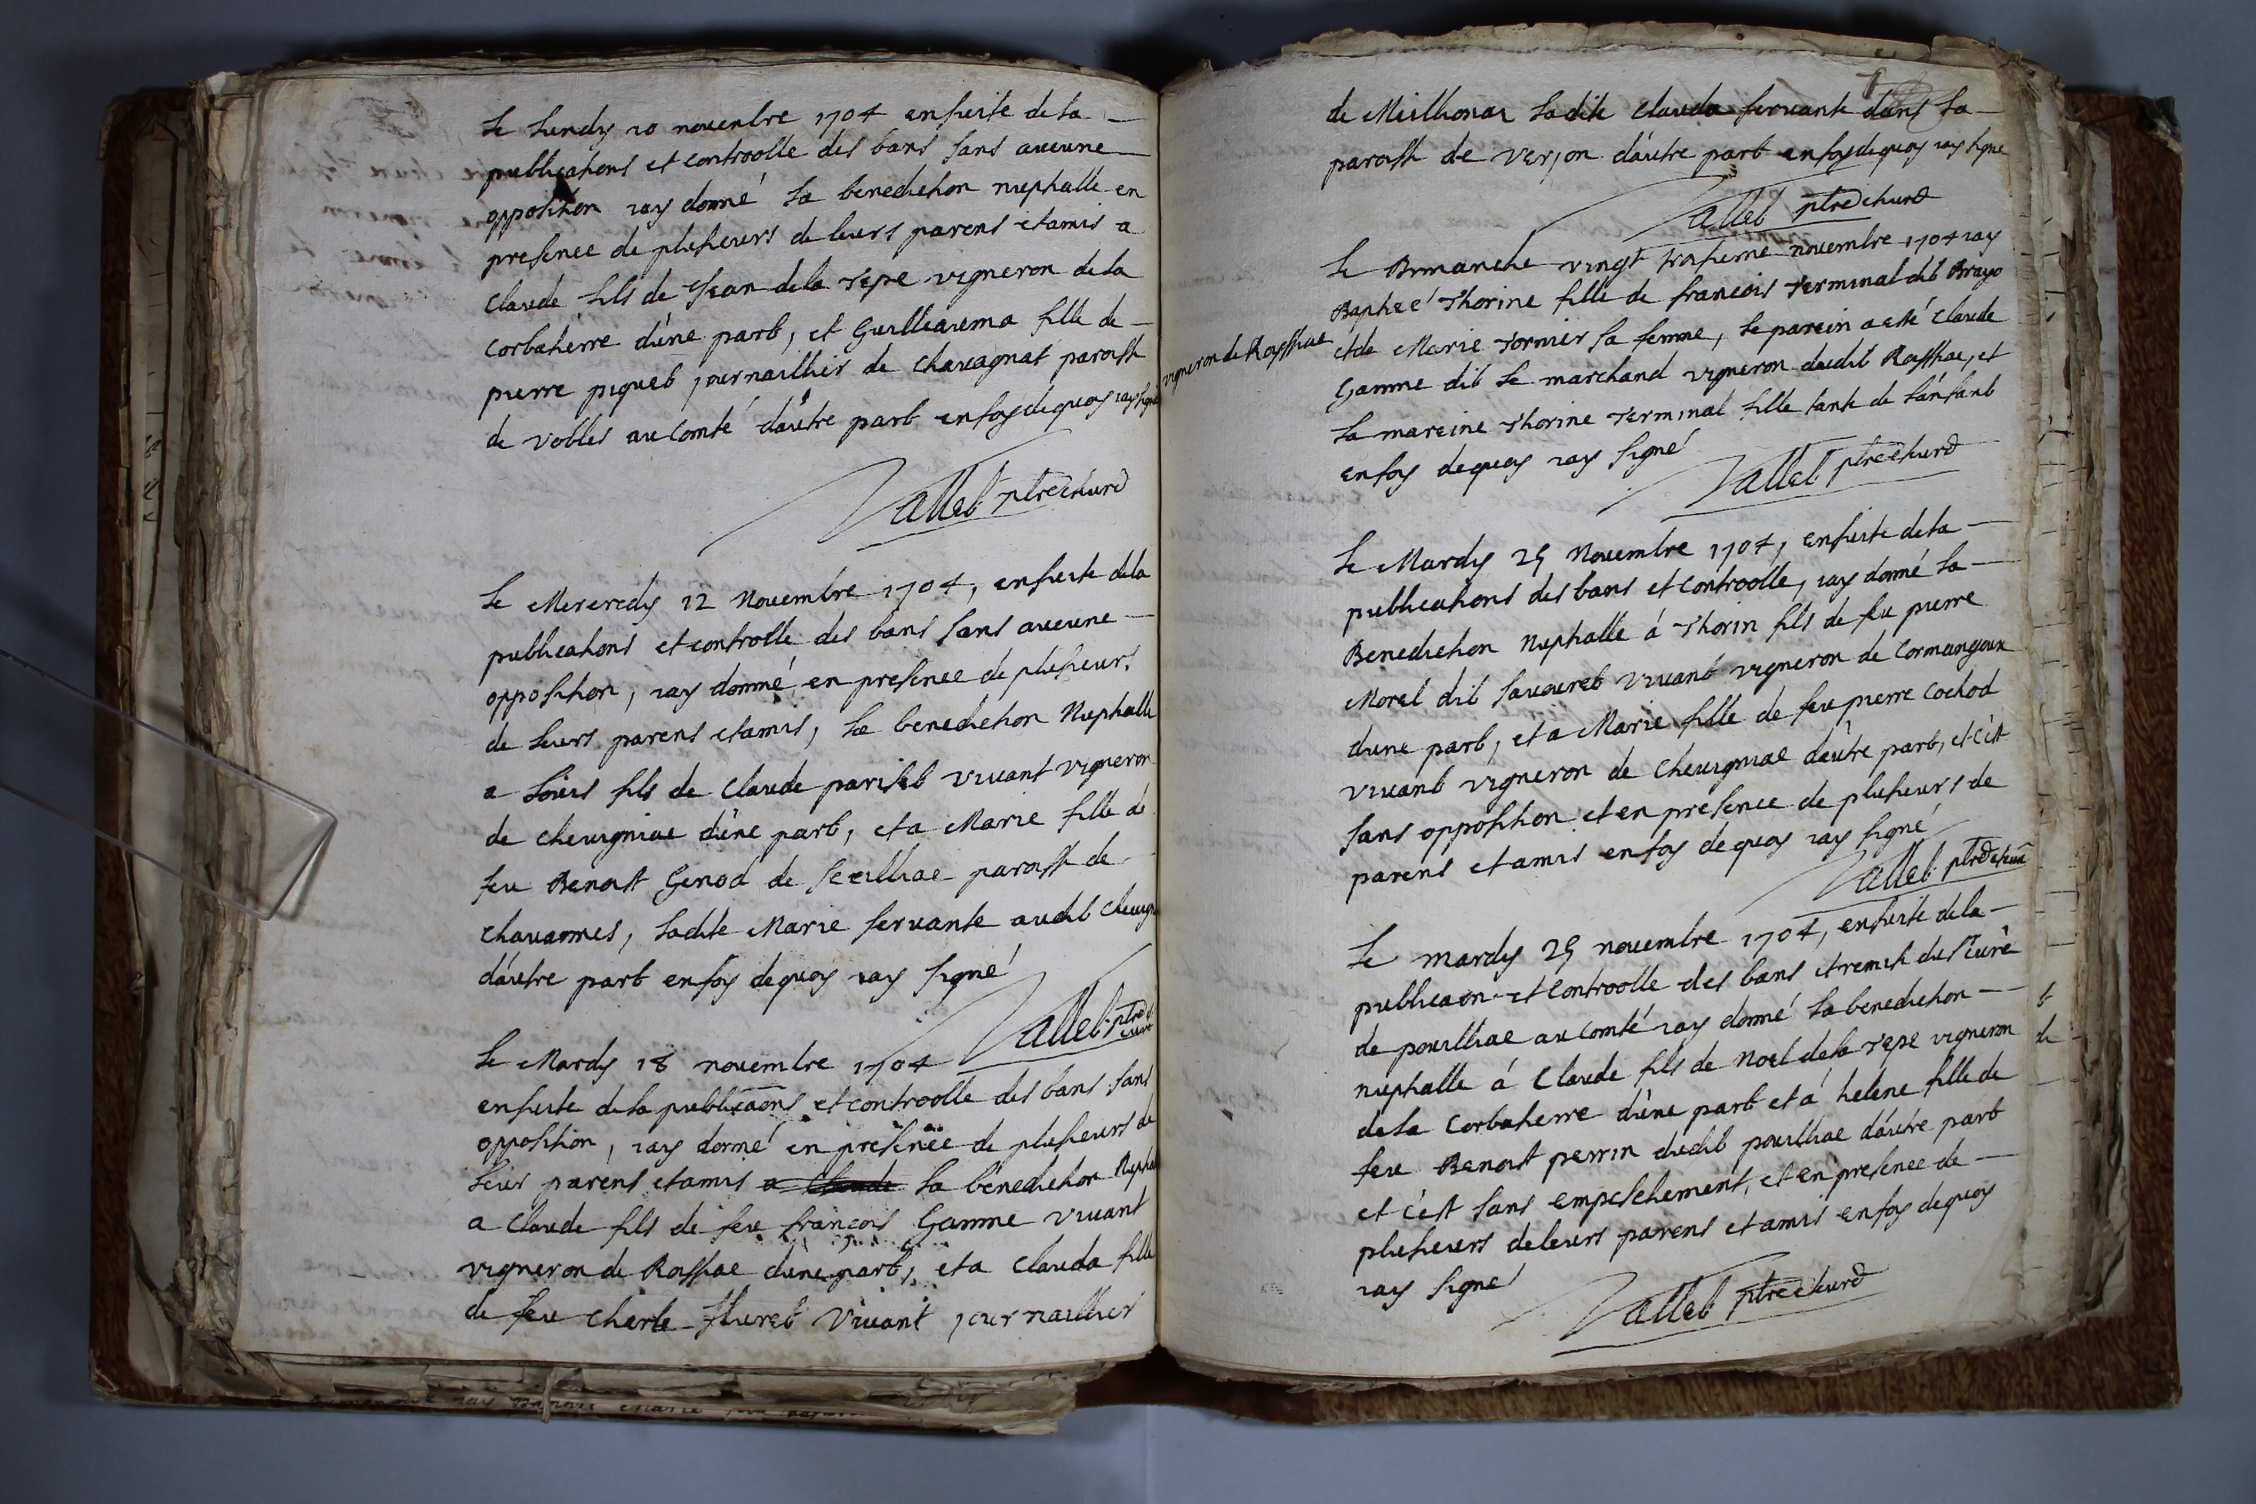 Le Lundy 10 novembre 1704 ensuite de la
publications et controolle des bans sans aucune
opposition iay donné la benediction nuptialle en
presence de plusieurs de leurs parens et amis a
Claude fils de Jean de la Tepe vigneron de la
Corbatierre d'une part, et Guilleauma fille de
pierre piqueb journaillier de Chavagnat paroisse
de Vobles au Comté d'autre part en foy de quoy iay signé
Vallet ptre et curé
Le Mercredy 12 Novembre 1704, ensuite de la
publications et controlle des bans sans aucune
opposition, iay donné en presence de plusieurs
de leurs parens et amis, la benediction Nuptialle
a Loüis fils de Claude pariset vivant vigneron
de cheuigniae d'une part, et a Marie fille de
feu Benoist Genod de seilliae paroisse de
Chavannes, ladite Marie servante audit cheuign
d'autre part en foy de quoy iay signé
Vallet ptre et curé
Le Mardy 18 novembre 1704
ensuite de la publicaons et controolle des bans sans
opposition, iay donné en presence de plusieurs de
leur parens et amis a Claude la benediction Nuptia
a Claude fils de feu françois Gamme vivant
vigneron de Rossiae d'une part, et a Clauda fille
de feu Charle fluret vivant journaillier
de Meillionas ladite Clauda servante dans la
paroisse de Verjon d'autre part en foy de quoy iay signe
Vallet ptre et curé
Le Dimanche vingt troisieme novembre 1704 iay
Baptizé Thorine fille de françois Terminal dit Brayo
vigneron de Rossiae
et de Marie Tornier sa femme, le parein a esté Claude
Gamme dit le marchand vigneron dudit Rossiae, et
la mareine Thorine Terminal fille tante de l'enfant
en foy de quoy iay signé
Vallet ptre et curé
Le Mardy 25 Novembre 1704, ensuite de la
publications des bans et controolle, iay donné la
Benediction Nuptialle á Thorin fils de feu pierre
Morel dit Sauouret vivant vigneron de Cormangoux
d'une part, et a Marie fille de feu pierre Cochod
vivant vigneron de Cheuigniae d'autre part, et c'est
sans opposition et en presence de plusieurs de
parens et amis en foy de quoy iay signé
Vallet ptre et curé
Le mardy 25 novembre 1704, ensuite de la
publicaon et controolle des bans et remise du Sr Curé
de pouilliae au Comté iay donné la benediction
nuptialle á Claude fils de Noel de la Tepe vigneron
de la Corbatierre d'une part et á helene fille de
feu Benoist perrin dudit pouilliae d'autre part
et c'est sans empeschement, et en presence de
plusieurs de leurs parens et amis en foy de quoy
iay signé
Vallet ptre et curé